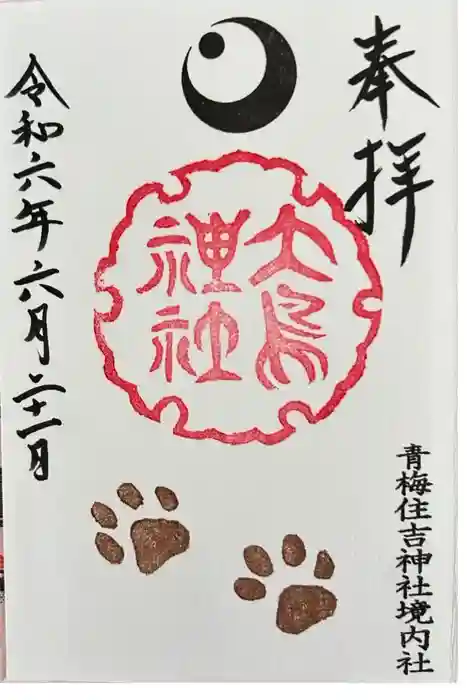 奉拝
大鳥
神社
青梅住吉神社境内社
令和六年六月二十一日